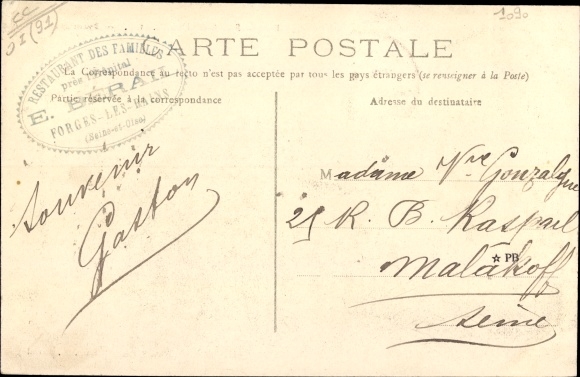 1090
CC
91 (91)
CARTE POSTALE
La Correspondance au recto n'est pas acceptée par tous les pays étrangers (se renseigner à la Poste)
RESTAURANT DES FAMILLES
près l'hôpital
FORGES-LES-BAINS
(Seine-et-Oise)
Partie réservée à la correspondance
Souvenir
Gaston
Adresse du destinataire
Madame Vve Gonzalgue
25 R. B. Raspail
☆ PB
Malakoff
Seine